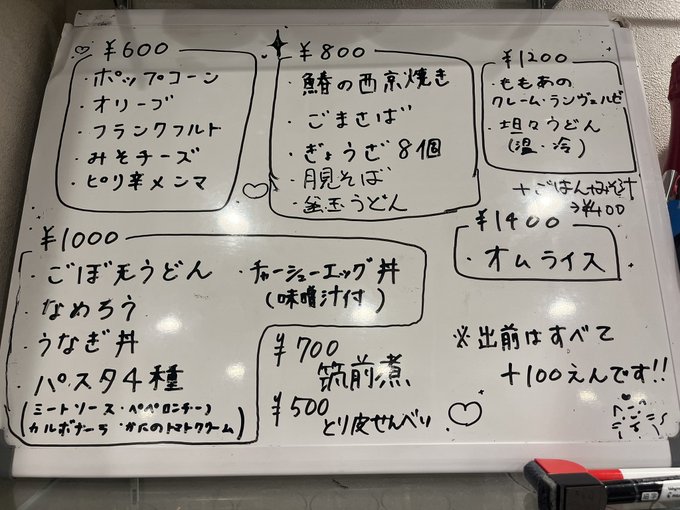 ¥600
・ポップコーン
・オリーブ
・フランクフルト
・みそチーズ
・ピリ辛メンマ
¥800
・鰆の西京焼き
・ごまさば
・ぎょうざ8個
・月見そば
・釜玉うどん
¥1200
・ももあの
クレーム・ランヴェルセ
・坦々うどん
(温・冷)
+ごはんみそ汁
→¥400
¥1400
・オムライス
¥1000
・ごぼ天うどん
・なめろう
・うなぎ丼
・パスタ4種
(ミートソース・ペペロンチーノ
カルボナーラ・かにのトマトクリーム)
・チャーシューエッグ丼
(味噌汁付)
¥700
筑前煮
¥500
とり皮せんべい
※出前はすべて
+100えんです!!